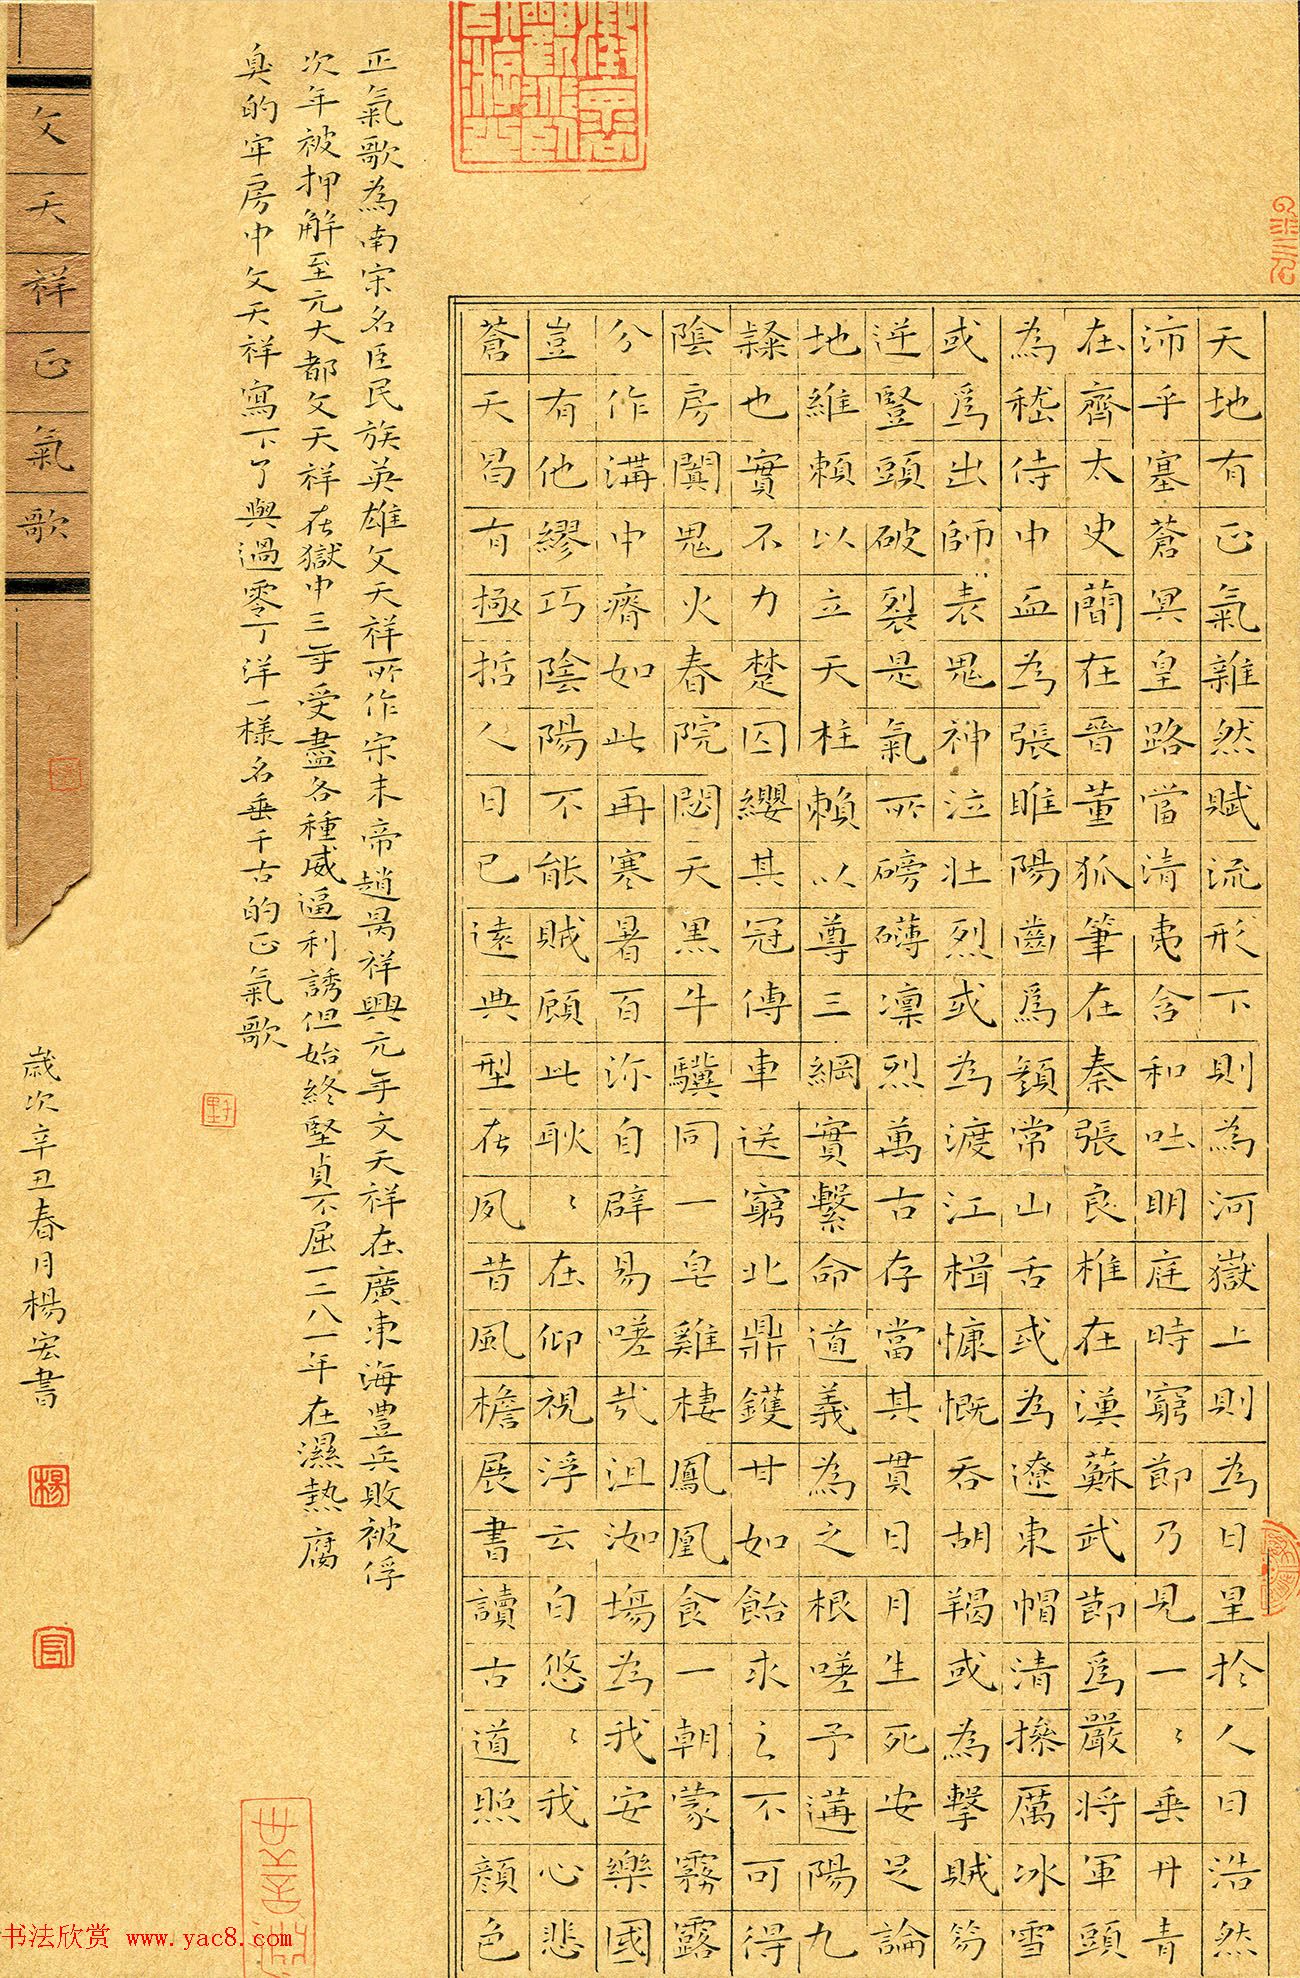 天地有正氣雜然賦流形下則為河嶽上則為日星於人曰浩然
沛乎塞蒼冥皇路當清夷含和吐明庭時窮節乃見一〻垂丹青
在齊太史簡在晉董狐筆在秦張良椎在漢蘇武節爲嚴將軍頭
為嵇侍中血為張睢陽齒爲顏常山舌或為遼東帽清操厲冰雪
或爲出師表鬼神泣壯烈或為渡江楫慷慨吞胡羯或為擊賊笏
逆豎頭破裂是氣所磅礴凜烈萬古存當其貫日月生死安足論
地維賴以立天柱賴以尊三綱實繫命道義為之根嗟予遘陽九
隸也實不力楚囚纓其冠傳車送窮北鼎鑊甘如飴求之不可得
陰房闃鬼火春院閟天黑牛驥同一皂雞棲鳳凰食一朝蒙霧露
分作溝中瘠如此再寒暑百沴自辟易嗟哉沮洳場為我安樂國
豈有他繆巧陰陽不能賊顧此耿〻在仰視浮云白悠〻我心悲
蒼天曷有極哲人日已遠典型在夙昔風檐展書讀古道照顏色
正氣歌為南宋名臣民族英雄文天祥所作宋末帝趙昺祥興元年文天祥在廣東海豊兵敗被俘
次年被押解至元大都文天祥在獄中三年受盡各種威逼利誘但始終堅貞不屈一二八一年在濕熱腐
臭的牢房中文天祥寫下了與過零丁洋一樣名垂千古的正氣歌
文天祥正氣歌
歲次辛丑春月楊宏書
楊
宏
书法欣赏 www.yac8.com